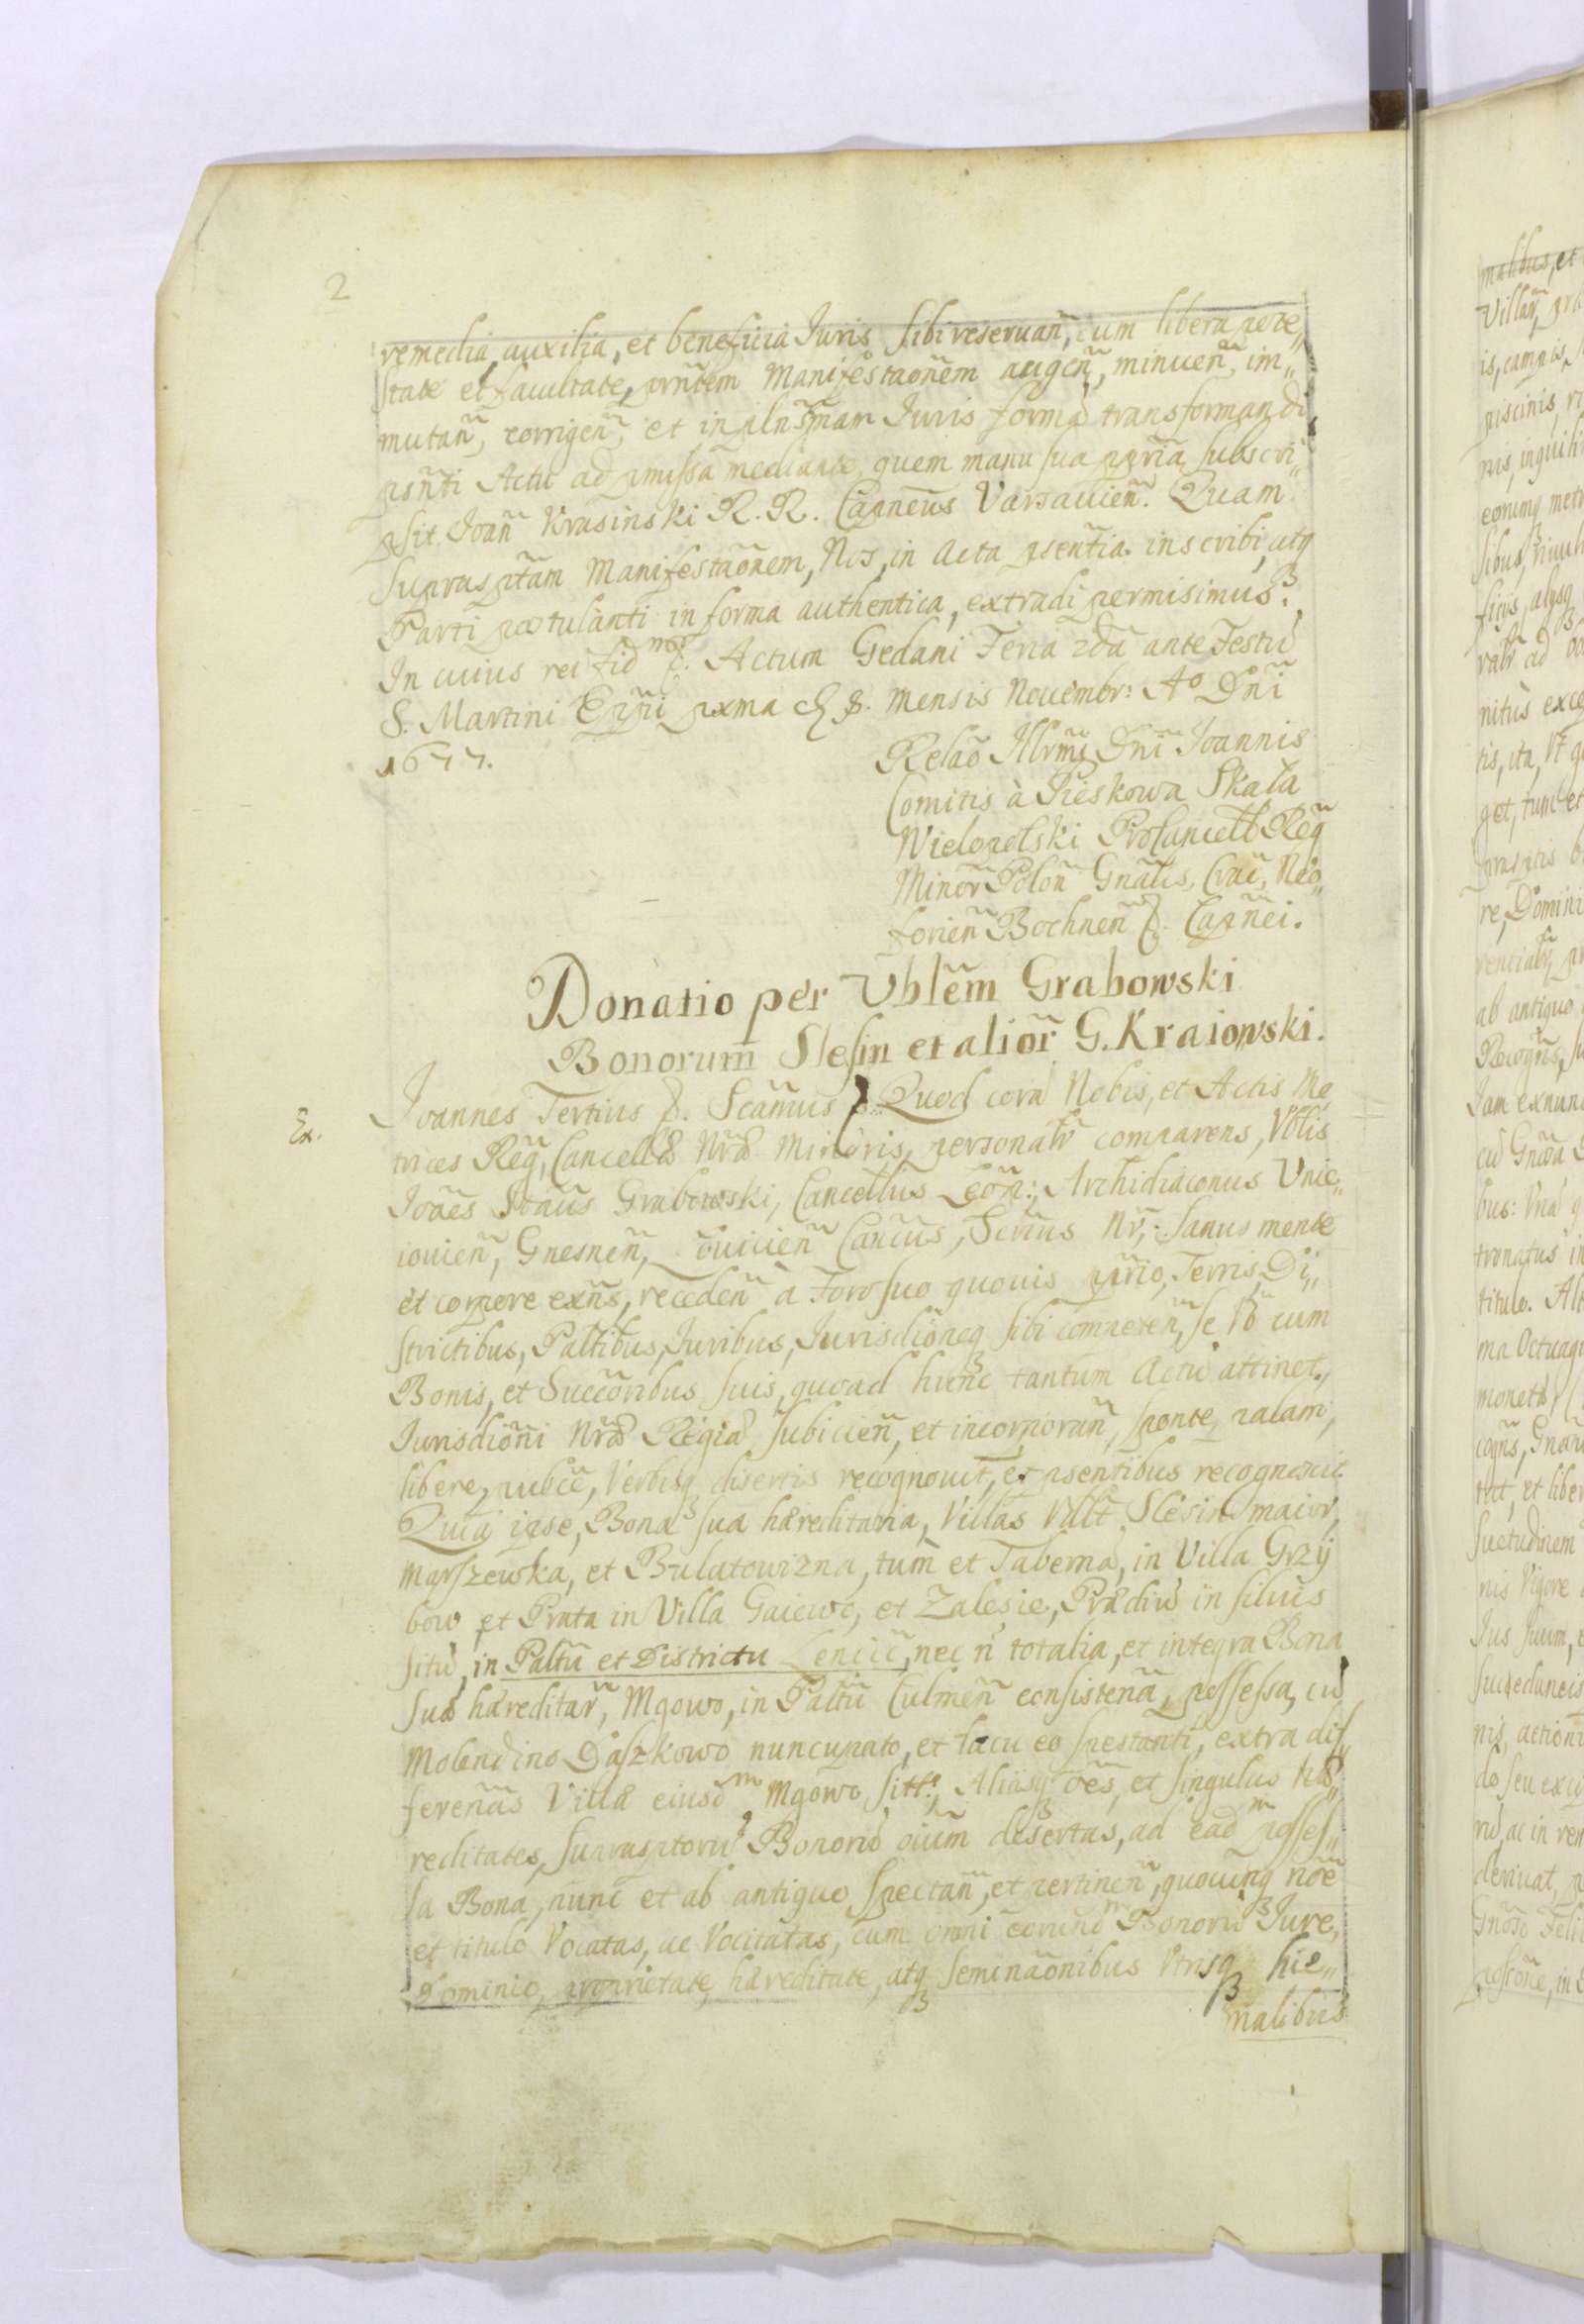 2
remedia, auxilia, et beneficia Juris sibi reseruañ, cum libera pote„
state et facultate, prñtem Manifestaoñem augeñ, minueñ, im„
mutañ, corrigeñ, et in plñsmam Juris formã transformandi,
psñti Actu ad pmissa mediante, quem manu sua ppria subscri„
psit. Joañ Krasinski R. R. Capneus Varsauieñ. Quam
suprasptam Manifestaõnem, Nos, in Acta psentia inscribi, atq
Parti postulanti in forma authentica, extradi permisimus.
In cuius rei fid m &. Actum Gedani Feria 2da ante Festũ
S. Martini Eppi pxma d. 8. mensis Nouembr: Ao Dñi
1677.
Relaõ Illrmi Dñi Joannis
Comitis à Pieskowa Skała
Wielopolski ProCancell Regñ
Minor Poloñ Gñalis, Crac, Neo„
forieñ Bochneñ &. Capñei.
Donatio per Vblẽm Grabowski
Bonorum Slesin et alior G. Kraiowski.
Ex.
Joannes Tertius &. Scãmus &. Quod corã Nobis, et Actis Me
trices Regñ, Cancellæ Nræ Minoris, personalr comparens, Vblis
Joães Staũs Grabowski, Cancellus Archidiaconus Vnie„
iouieñ, Gnesneñ, Louicieñ Cañcus, Scrius Nr, sanus mente
et corpore exñs, recedeñ à Foro suo quouis pprio, Terris, Di„
strictibus, Paltibus, Juribus, Jurisdiõneq sibi competeñ, se Vo cum
Bonis, et Succoribus suis, quoad hunc tantum Actũ attinet,
Jurisdiõni Nræ Regiæ subiicieñ, et incorporañ, sponte, palam,
libere, publce, Verbisq disertis recognouit, et psentibus recognoscit.
Quia ipse, Bona sua hæreditaria, Villas Vidlt Slesin maior,
Marszewka, et Bulatowizna, tum et Tabernã, in Villa Grzy
bow et Prata in Villa Gaiewo, et Zalesie, Prædiũ in siluis
sitũ, in Paltu et Districtu Lencic, nec ñ totalia, et integra Bona
sua hæreditar, Mgowo, in Paltu Culmeñ consisteña, possessa, cũ
Molendino Daszkowo nuncupato, et lacu eo spectanti, extra dif„
fereñas Villæ eiusd m Mgowo sitt., Aliasq oẽs, et singulas hæ„
reditates, supraspptorũ Bonorũ oium desertas, ad ead m posses„
sa Bona, nunc et ab antiquo spectañ, et pertineñ, quocunq nõe
et titulo Vocatas, ac Vocitatas, cum omni eorund m Bonorũ Jure,
Dominio, proprietate, hæreditate, atq seminaõnibus Vtrisq hie„
malibus